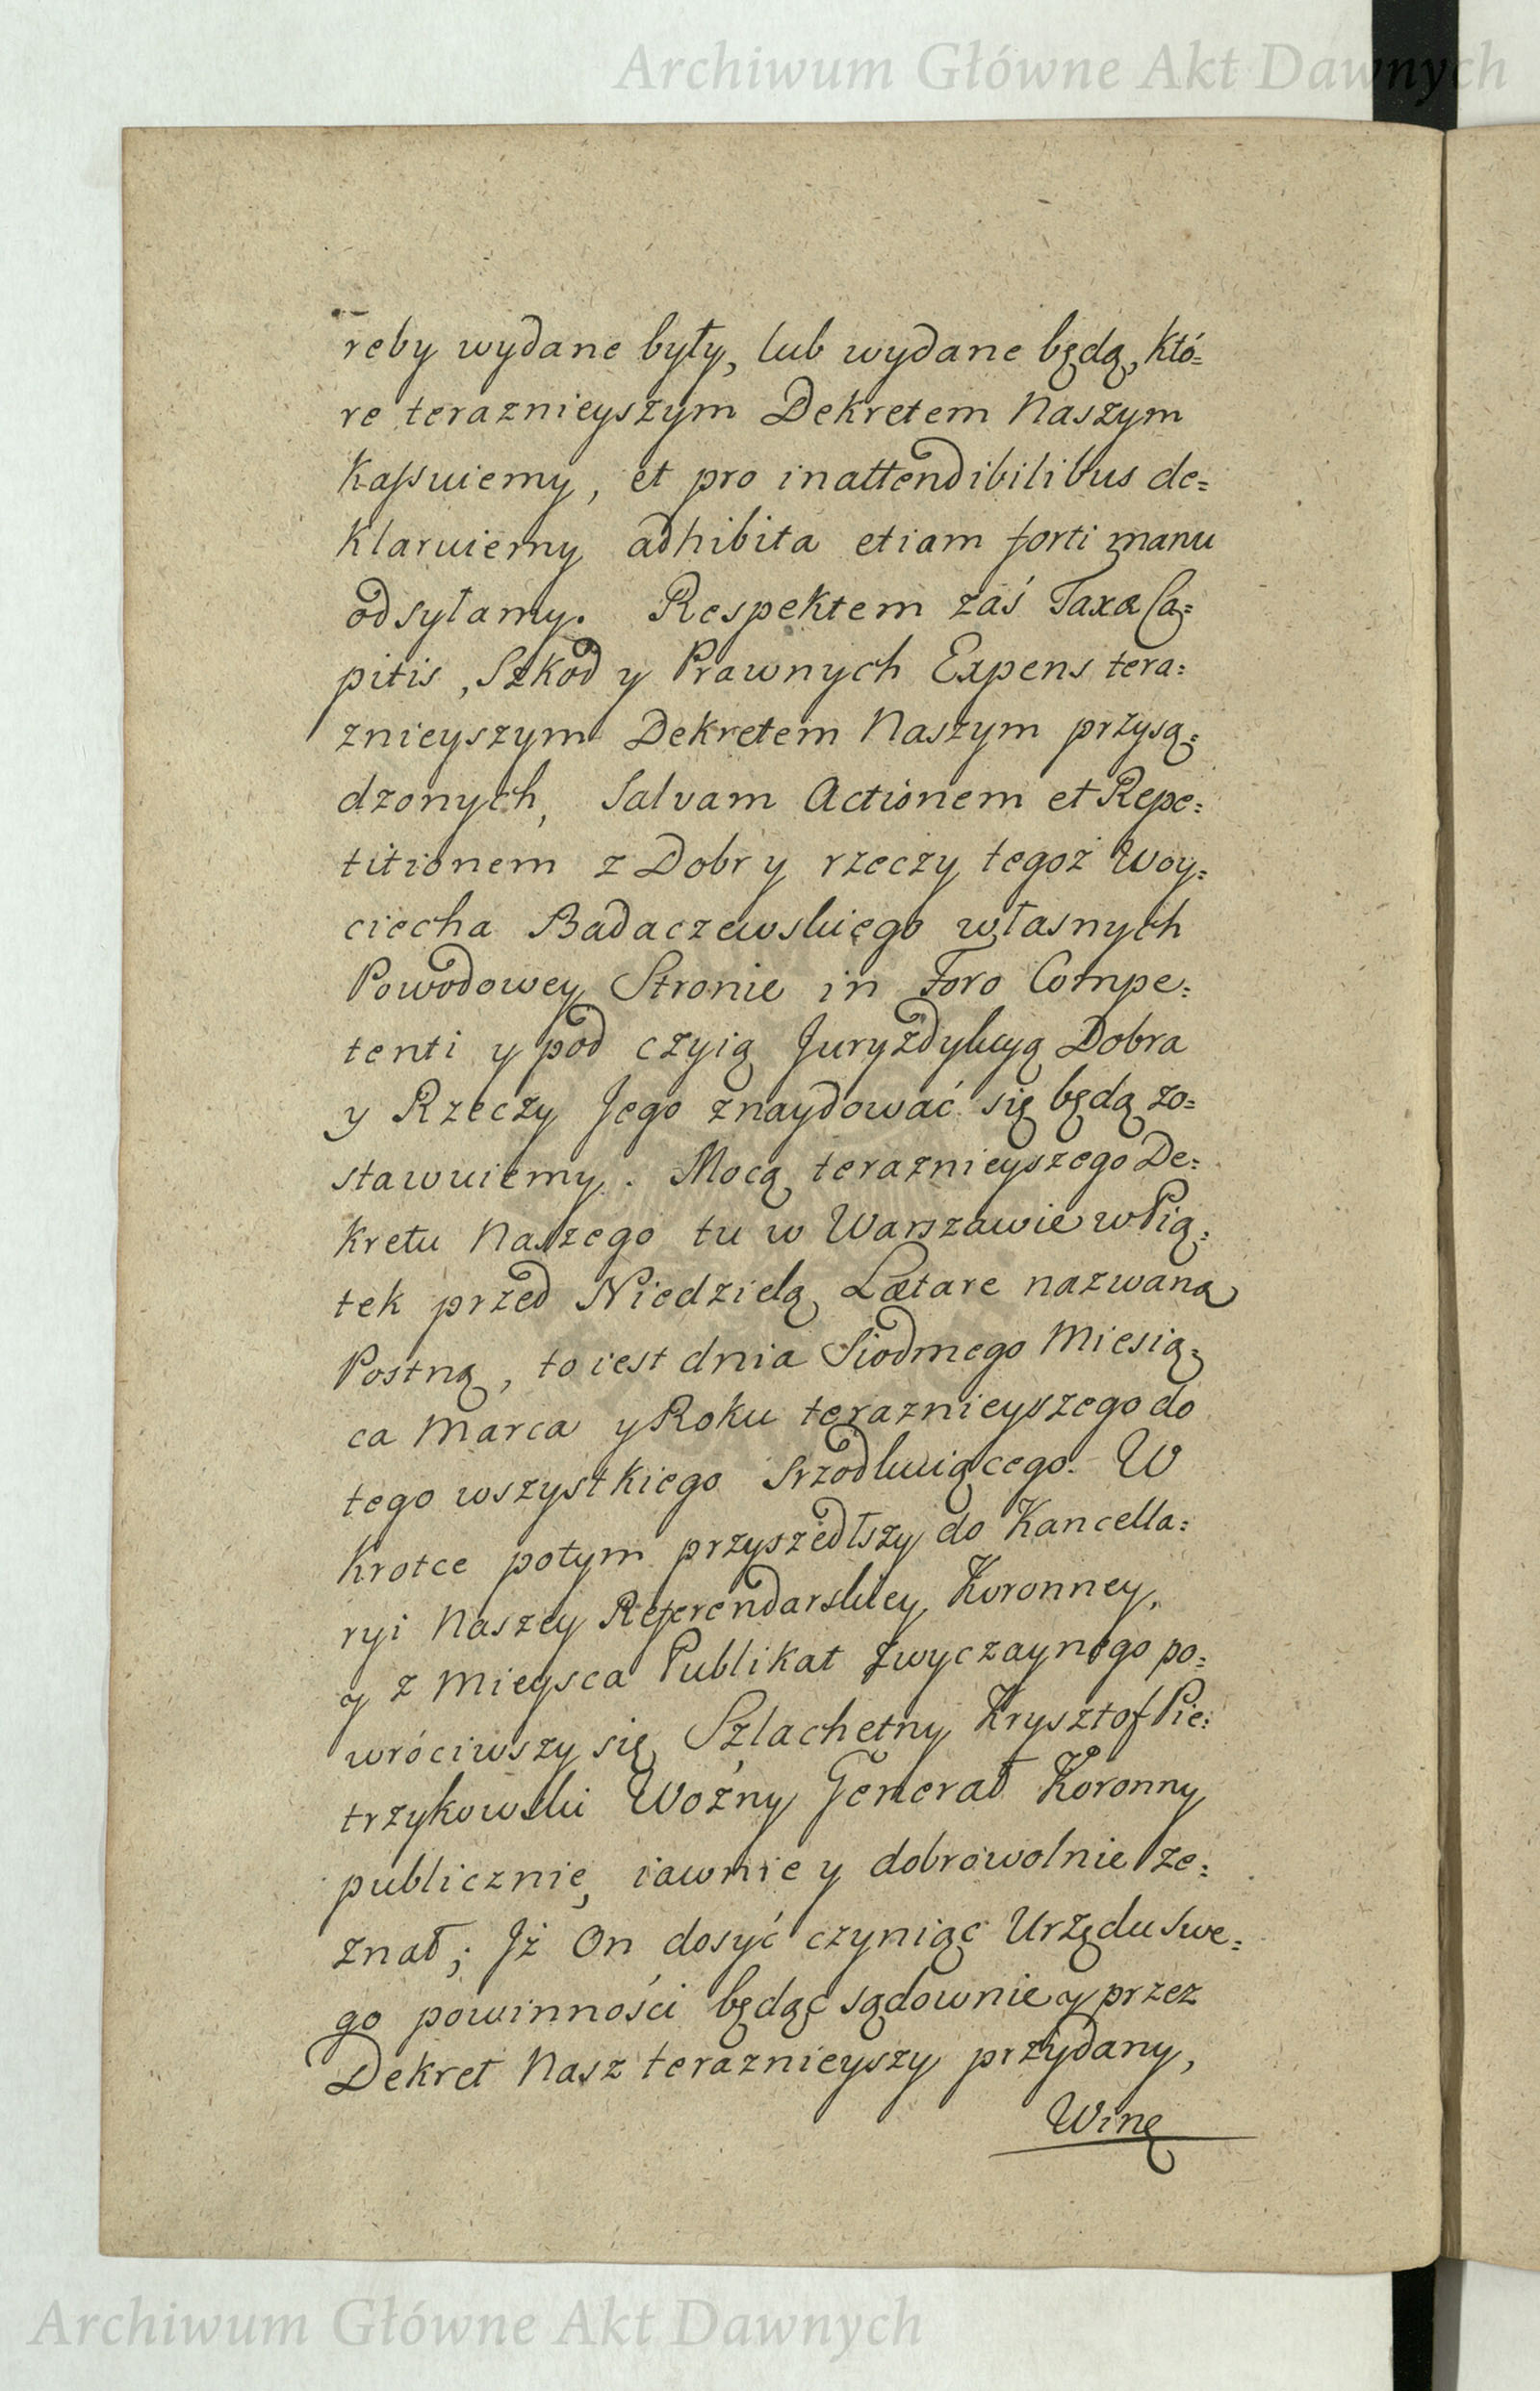 Archiwum Główne Akt Dawnych
reby wydane były, lub wydane będą, któ=
re teraznieyszym Dekretem Naszym
Kassuiemy, et pro inattendibilibus de=
klaruiemy adhibita etiam forti manu
odsyłamy. Respektem zaś Taxæ Ca=
pitis, Szkod y Prawnych Expens tera=
znieyszym Dekretem Naszym przysą=
dzonych, Salvam Actionem et Repe=
titionem z Dobr y rzeczy tegoż Woy=
ciecha Badaczewskiego własnych
Powodowey Stronie in Foro Compe=
tenti y pod czyią Juryzdykcyą Dobra
y Rzeczy Jego znaydować się będą zo=
stawuiemy. Mocą teraznieyszego De=
kretu Naszego tu w Warszawie w Pią=
tek przed Niedzielą Lætare nazwaną
Postną, to iest dnia Siodmego Miesią=
ca Marca y Roku teraznieyszego do
tego wszystkiego Srzodkuiącego. W
Krotce potym przyszedłszy do Kancella=
ryi Naszey Referendarskiey Koronney,
y z Mieysca Publikat zwyczaynego po=
wróciwszy się Szlachetny Krysztof Pie=
trzykowski Woźny Generał Koronny
publicznie, iawnie y dobrowolnie ze=
znał; Jż On dosyć czyniąc Urzędu swe=
go powinności będąc sądownie y przez
Dekret Nasz teraznieyszy przydany,
Winę
Archiwum Główne Akt Dawnych